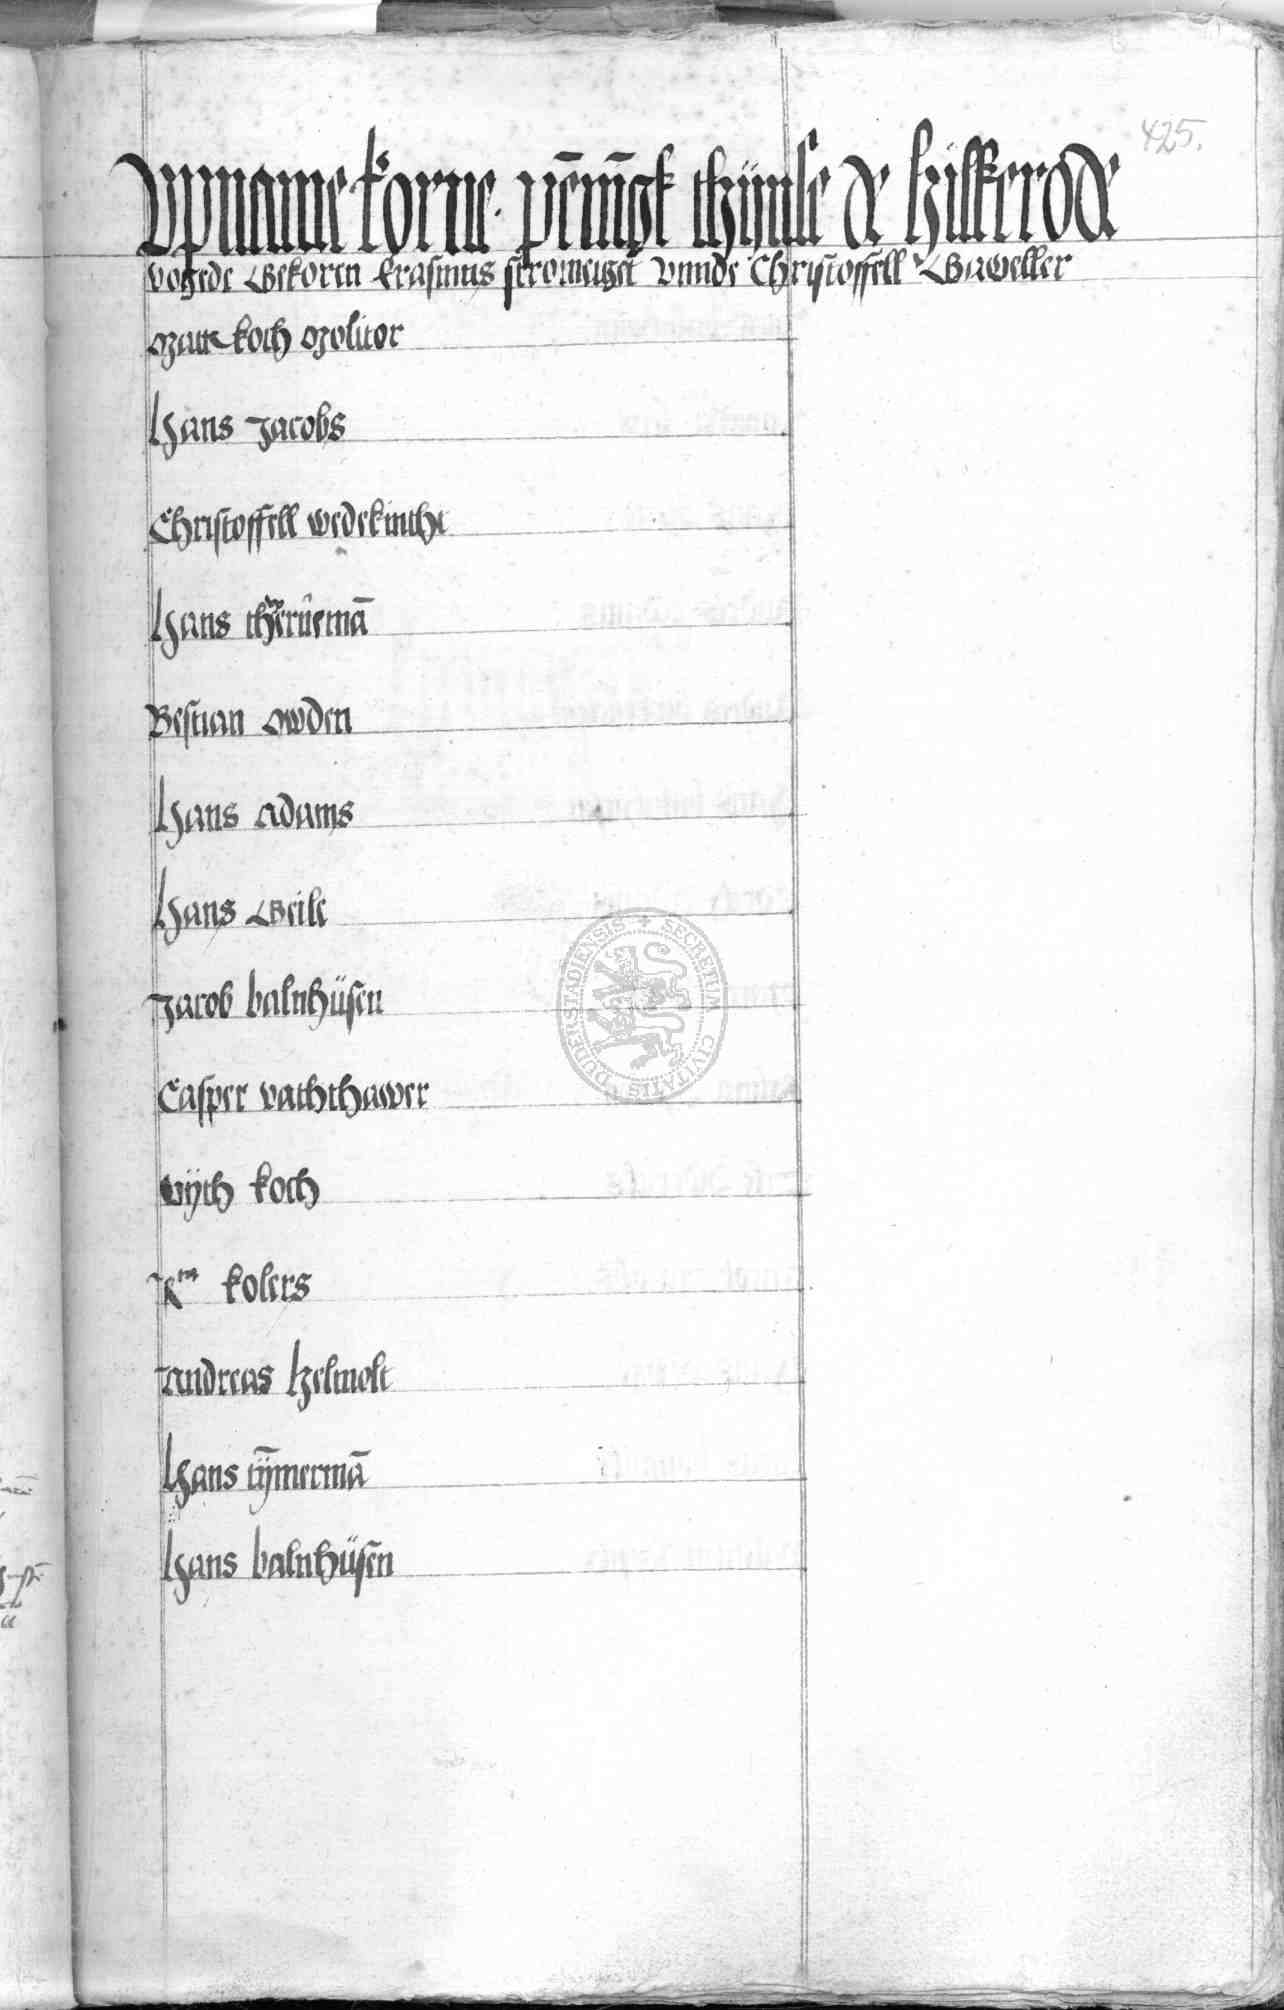 425.
Vpname korne pēnīgk thÿnse de hilkerode
vogede Gekoren Erasmus stromeiget vnnde Christoffell Gaweller
Marx koch Molitor
Hans Jacobs
Christoffell wedekincht
Hans
Bestian owden
Hans Adams
Hans Geile
Jacob balnhüsen
Casper vaththawer
vÿth koch
kolers
Andreas helmolt
Hans tȳmermā
Hans balnhüsēn
SECRETUM CIVITATIS DUDERSTADIENSIS